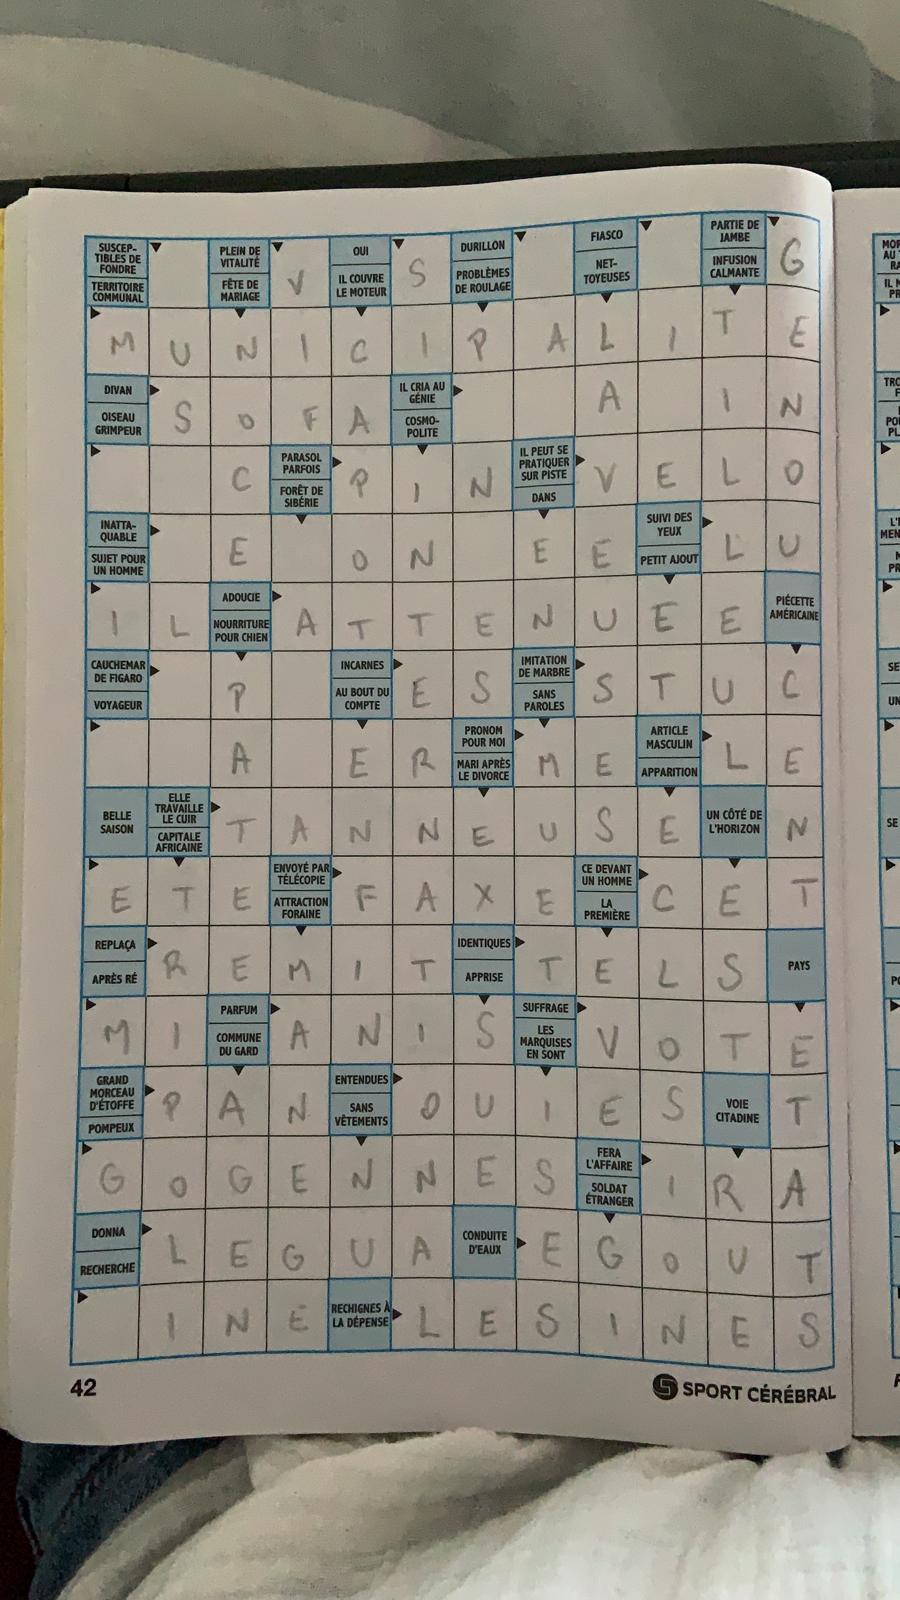 SUSCEP-
TIBLES DE
FONDRE
TERRITOIRE
COMMUNAL
PLEIN DE
VITALITÉ
FÊTE DE
MARIAGE
V
OUI
IL COUVRE
LE MOTEUR
S
DURILLON
PROBLÈMES
DE ROULAGE
FIASCO
NET-
TOYEUSES
PARTIE DE
JAMBE
INFUSION
CALMANTE
G
M U N I C I P A L I T E
DIVAN
OISEAU
GRIMPEUR
S O F A
IL CRIA AU
GÉNIE
COSMO-
POLITE
A I N
C
PARASOL
PARFOIS
FORÊT DE
SIBÉRIE
P I N
IL PEUT SE
PRATIQUER
SUR PISTE
DANS
V E L O
INATTA-
QUABLE
SUJET POUR
UN HOMME
E O N E E
SUIVI DES
YEUX
PETIT AJOUT
L U
I L
ADOUCIE
NOURRITURE
POUR CHIEN
A T T E N U E E
PIÉCETTE
AMÉRICAINE
CAUCHEMAR
DE FIGARO
VOYAGEUR
P
INCARNES
AU BOUT DU
COMPTE
E S
IMITATION
DE MARBRE
SANS
PAROLES
S T U C
A E R
PRONOM
POUR MOI
MARI APRÈS
LE DIVORCE
M E
ARTICLE
MASCULIN
APPARITION
L E
BELLE
SAISON
ELLE
TRAVAILLE
LE CUIR
CAPITALE
AFRICAINE
T A N N E U S E
UN CÔTÉ DE
L'HORIZON
N
E T E
ENVOYÉ PAR
TÉLÉCOPIE
ATTRACTION
FORAINE
F A X E
CE DEVANT
UN HOMME
LA
PREMIÈRE
C E T
REPLAÇA
APRÈS RÉ
R E M I T
IDENTIQUES
APPRISE
T E L S
PAYS
M I
PARFUM
COMMUNE
DU GARD
A N I S
SUFFRAGE
LES
MARQUISES
EN SONT
V O T E
GRAND
MORCEAU
D'ÉTOFFE
POMPEUX
P A N
ENTENDUES
SANS
VÊTEMENTS
O U I E S
VOIE
CITADINE
T
G O G E N N E S
FERA
L'AFFAIRE
SOLDAT
ÉTRANGER
I R A
DONNA
RECHERCHE
L E G U A
CONDUITE
D'EAUX
E G O U T
I N E
RECHIGNES À
LA DÉPENSE
L E S I N E S
42
SPORT CÉRÉBRAL